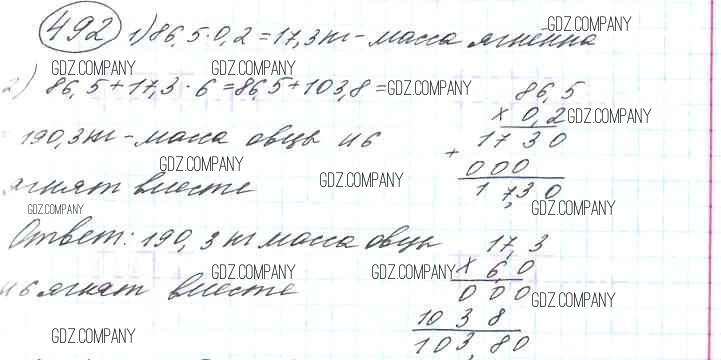 492 1) 86,5 · 0,2 = 17,3 кг - масса ягнёнка
GDZ.COMPANY
GDZ.COMPANY GDZ.COMPANY
2) 86,5 + 17,3 · 6 = 86,5 + 103,8 = GDZ.COMPANY
190,3 кг - масса овцы и 6
GDZ.COMPANY
ягнят вместе
GDZ.COMPANY
GDZ.COMPANY
Ответ: 190,3 кг масса овцы
и 6 ягнят вместе
GDZ.COMPANY GDZ.COMPANY
GDZ.COMPANY
86,5
× 0,2 GDZ.COMPANY
1730
+
000
17,30
GDZ.COMPANY
17,3
× 6,0
000 GDZ.COMPANY
1038
103,80